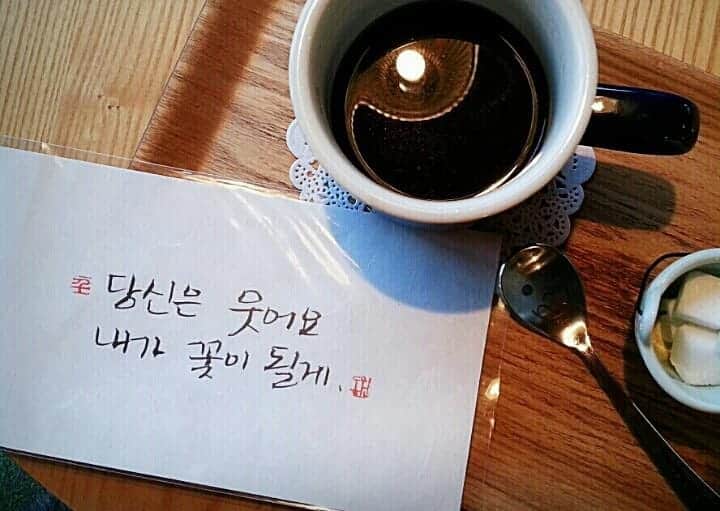 당신은 웃어요
내가 꽃이 될게.